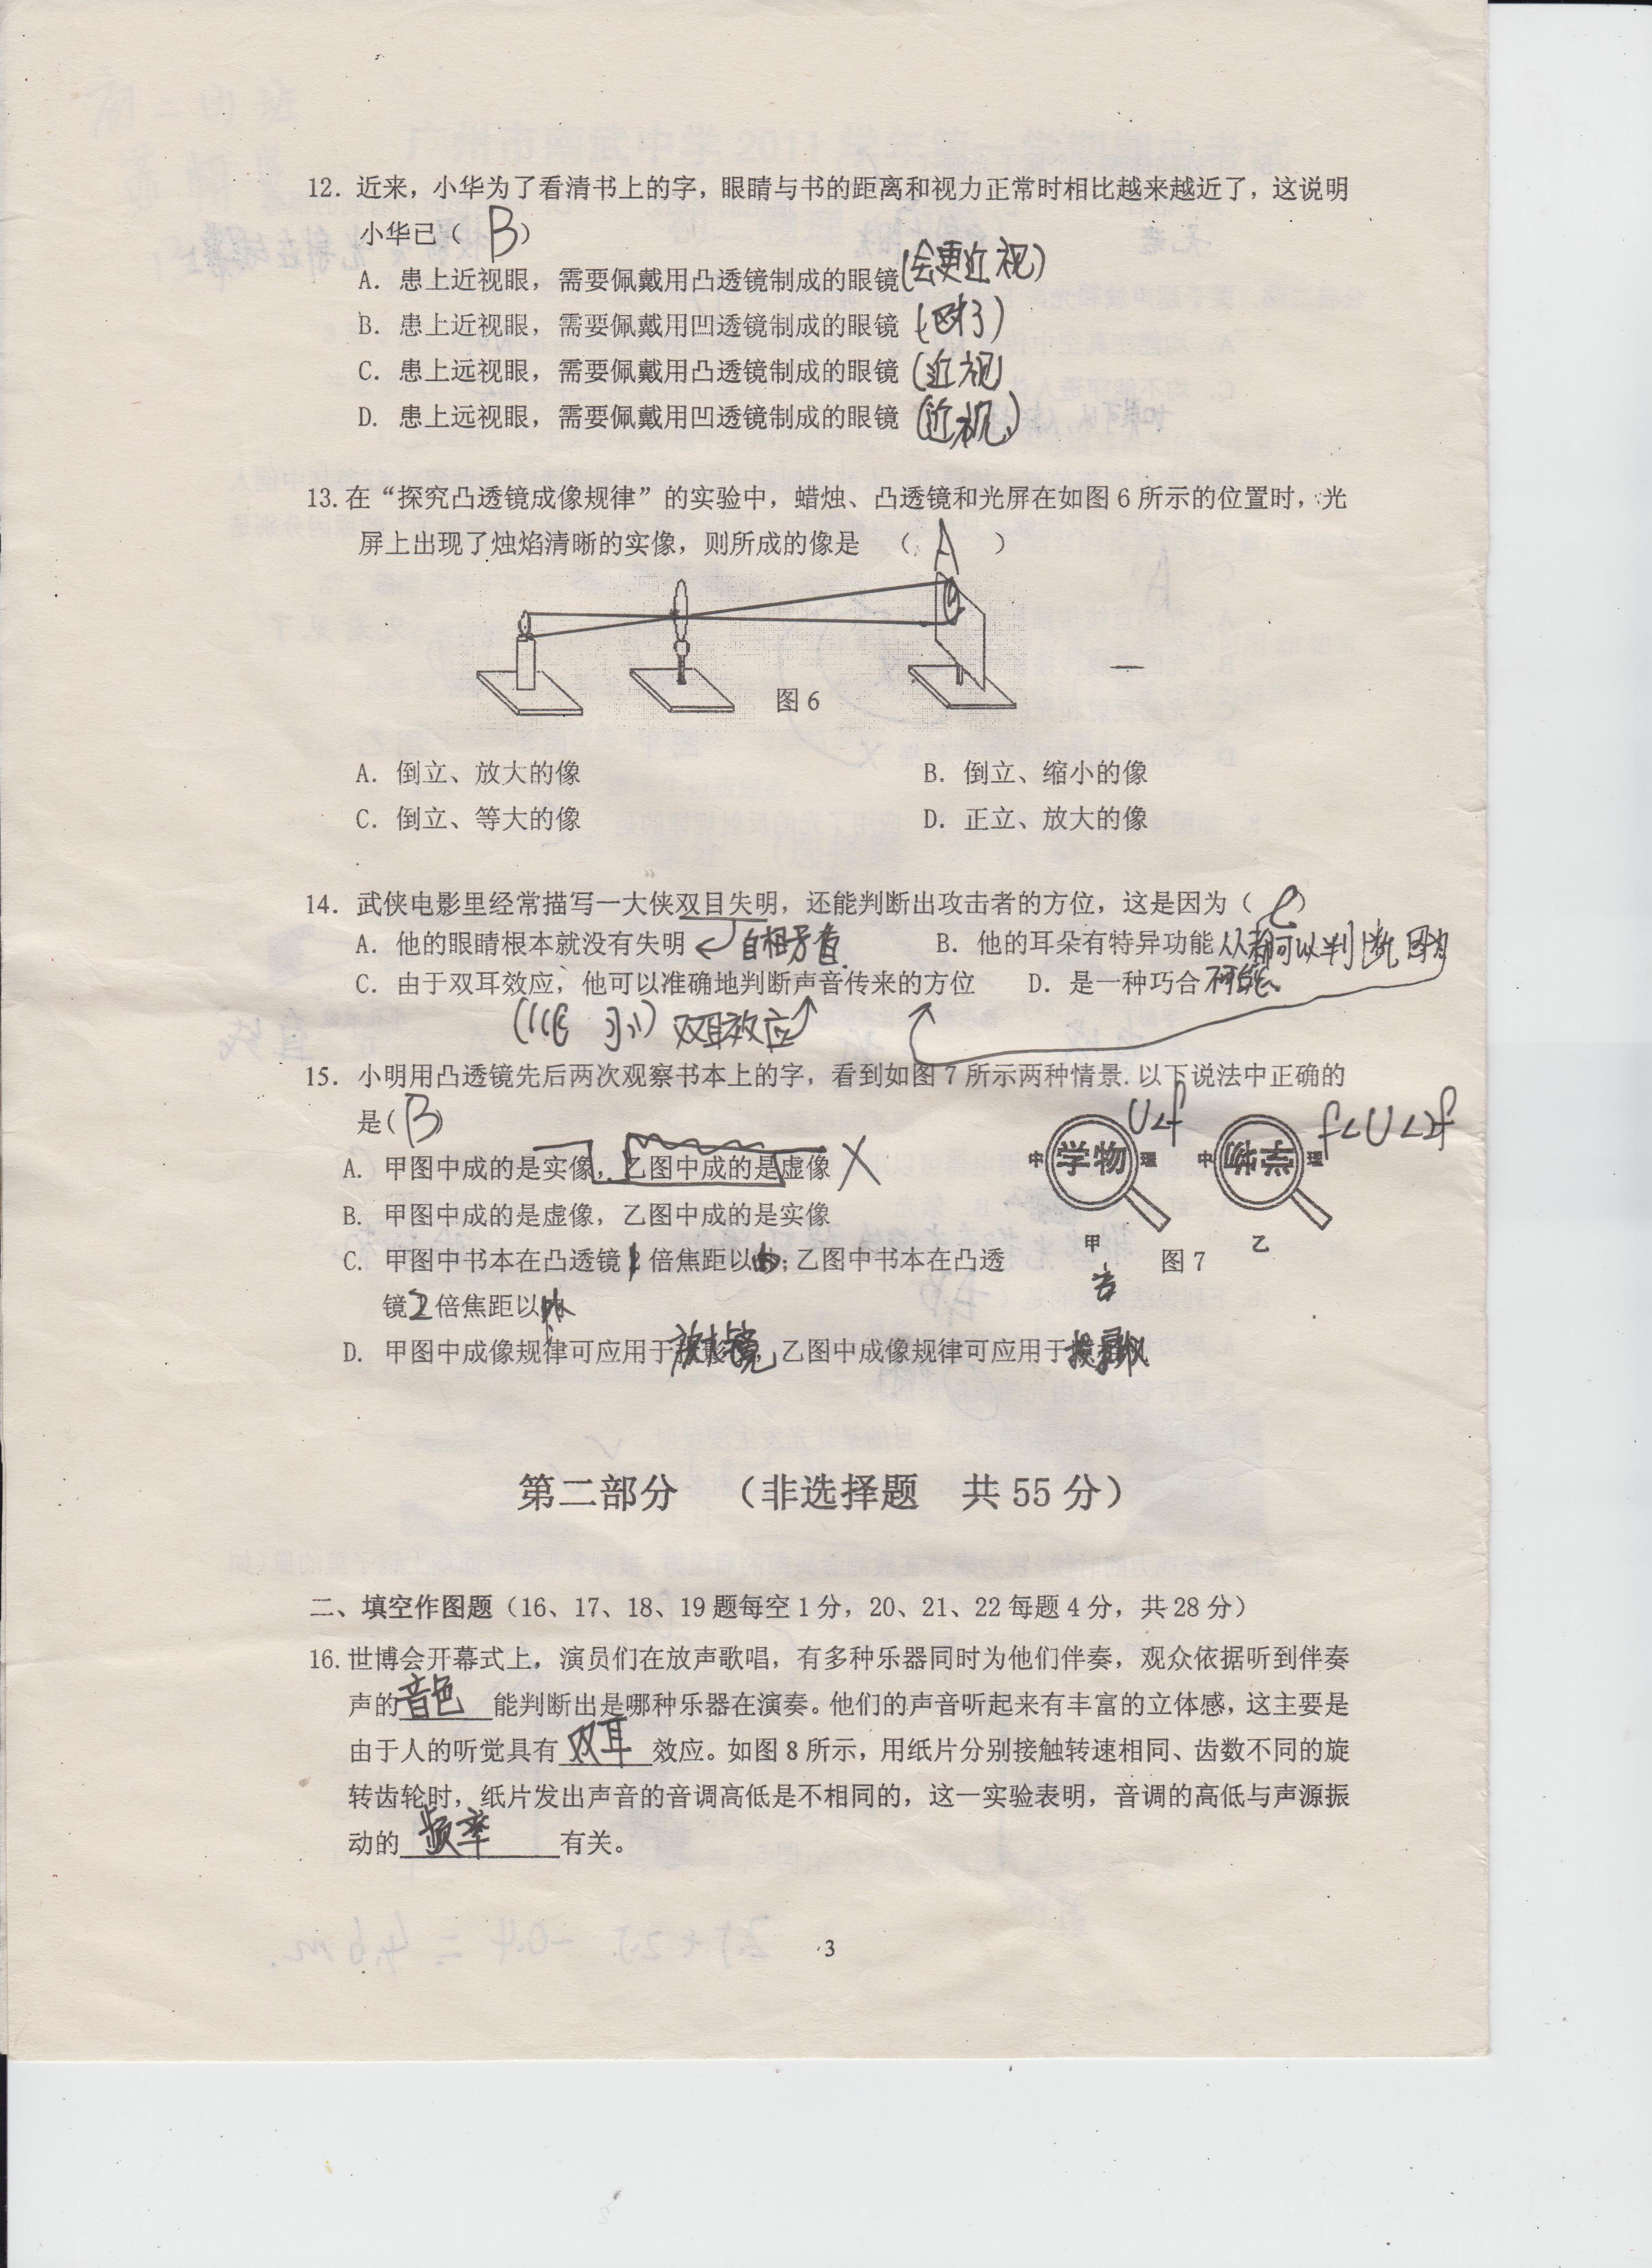 12. 近来，小华为了看清书上的字，眼睛与书的距离和视力正常时相比越来越近了，这说明
小华已（ B ）
A. 患上近视眼，需要佩戴用凸透镜制成的眼镜(会更近视)
B. 患上近视眼，需要佩戴用凹透镜制成的眼镜
C. 患上远视眼，需要佩戴用凸透镜制成的眼镜 (近视)
D. 患上远视眼，需要佩戴用凹透镜制成的眼镜 (近视)
13. 在“探究凸透镜成像规律”的实验中，蜡烛、凸透镜和光屏在如图 6 所示的位置时，光
屏上出现了烛焰清晰的实像，则所成的像是 （ A ）
图 6
A. 倒立、放大的像 B. 倒立、缩小的像
C. 倒立、等大的像 D. 正立、放大的像
14. 武侠电影里经常描写一大侠双目失明，还能判断出攻击者的方位，这是因为（ C ）
A. 他的眼睛根本就没有失明 自相矛盾 B. 他的耳朵有特异功能 人都可以判断 因为
C. 由于双耳效应，他可以准确地判断声音传来的方位 D. 是一种巧合 不可能
双耳效应
15. 小明用凸透镜先后两次观察书本上的字，看到如图 7 所示两种情景. 以下说法中正确的
是( B )
U<f f<U<2f
中 学物 理 中 学物 理
A. 甲图中成的是实像，乙图中成的是虚像 X
B. 甲图中成的是虚像，乙图中成的是实像
甲 图 7 乙
C. 甲图中书本在凸透镜 1 倍焦距以内；乙图中书本在凸透
镜 2 倍焦距以内
D. 甲图中成像规律可应用于放大镜，乙图中成像规律可应用于投影仪
第二部分 （非选择题 共 55 分）
二、填空作图题（16、17、18、19 题每空 1 分，20、21、22 每题 4 分，共 28 分）
16. 世博会开幕式上，演员们在放声歌唱，有多种乐器同时为他们伴奏，观众依据听到伴奏
声的 音色 能判断出是哪种乐器在演奏。他们的声音听起来有丰富的立体感，这主要是
由于人的听觉具有 双耳 效应。如图 8 所示，用纸片分别接触转速相同、齿数不同的旋
转齿轮时，纸片发出声音的音调高低是不相同的，这一实验表明，音调的高低与声源振
动的 频率 有关。
3